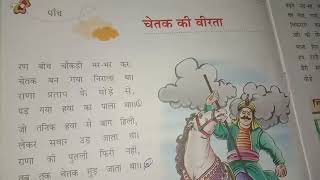 पाँच
चेतक की वीरता
रण बीच चौकड़ी भर-भर कर
चेतक बन गया निराला था
राणा प्रताप के घोड़े से
पड़ गया हवा का पाला था।
जो तनिक हवा से बाग हिली
लेकर सवार उड़ जाता था।
राणा की पुतली फिरी नहीं,
तब तक चेतक मुड़ जाता था।